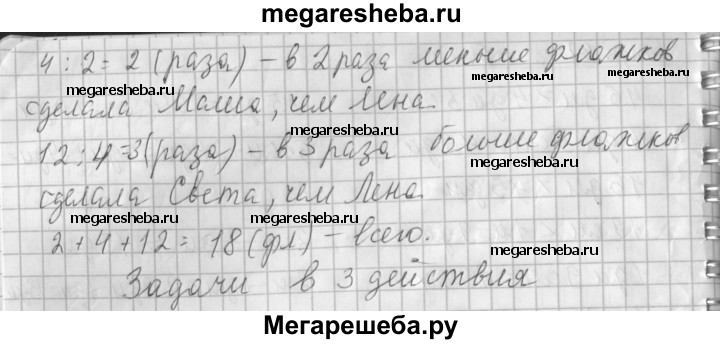 megaresheba.ru
4 : 2 = 2 (раза) – в 2 раза меньше флажков
megaresheba.ru megaresheba.ru megaresheba.ru
сделала Маша, чем Лена.
megaresheba.ru
12 : 4 = 3 (раза) – в 3 раза больше флажков
megaresheba.ru megaresheba.ru
сделала Света, чем Лена.
megaresheba.ru megaresheba.ru
2 + 4 + 12 = 18 (фл) – всего.
megaresheba.ru
Задачи в 3 действия
Мегарешеба.ру